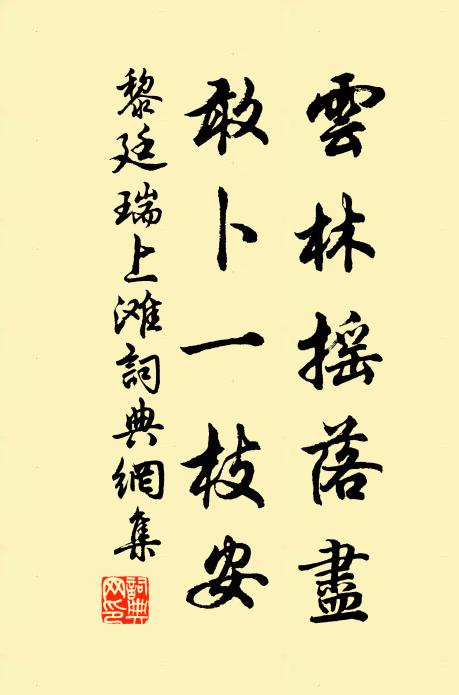 雲林搖落盡
敢卜一枝安
黎廷瑞上滩詞典網集
詞典网印